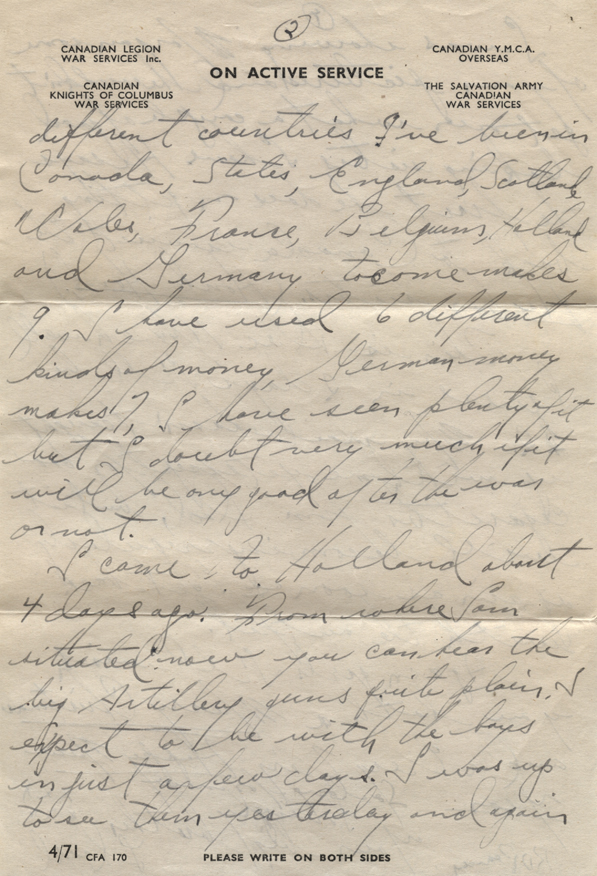 2
CANADIAN LEGION
WAR SERVICES Inc.
CANADIAN
KNIGHTS OF COLUMBUS
WAR SERVICES
ON ACTIVE SERVICE
CANADIAN Y.M.C.A.
OVERSEAS
THE SALVATION ARMY
CANADIAN
WAR SERVICES
different countries I've been in
Canada, States, England, Scotland
Wales, France, Belgium, Holland
and Germany to come makes
9. I have used 6 different
kinds of money, German money
makes 7, I have seen plenty of it
but I doubt very much if it
will be any good after the war
or not.
I came to Holland about
4 days ago. From where I am
situated now you can hear the
big Artillery guns quite plain. I
expect to be with the boys
in just a few days. I was up
to see them yesterday and again
4/71 CFA 170
PLEASE WRITE ON BOTH SIDES